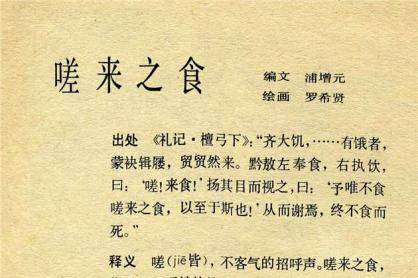 嗟来之食
编文 浦增元
绘画 罗希贤
出处 《礼记·檀弓下》：“齐大饥，……有饿者，
蒙袂辑屦，贸贸然来。黔敖左奉食，右执饮，
曰：‘嗟！来食！’扬其目而视之，曰：‘予唯不食
嗟来之食，以至于斯也！’从而谢焉，终不食而
死。”
释义 嗟（jiē皆），不客气的招呼声。嗟来之食，